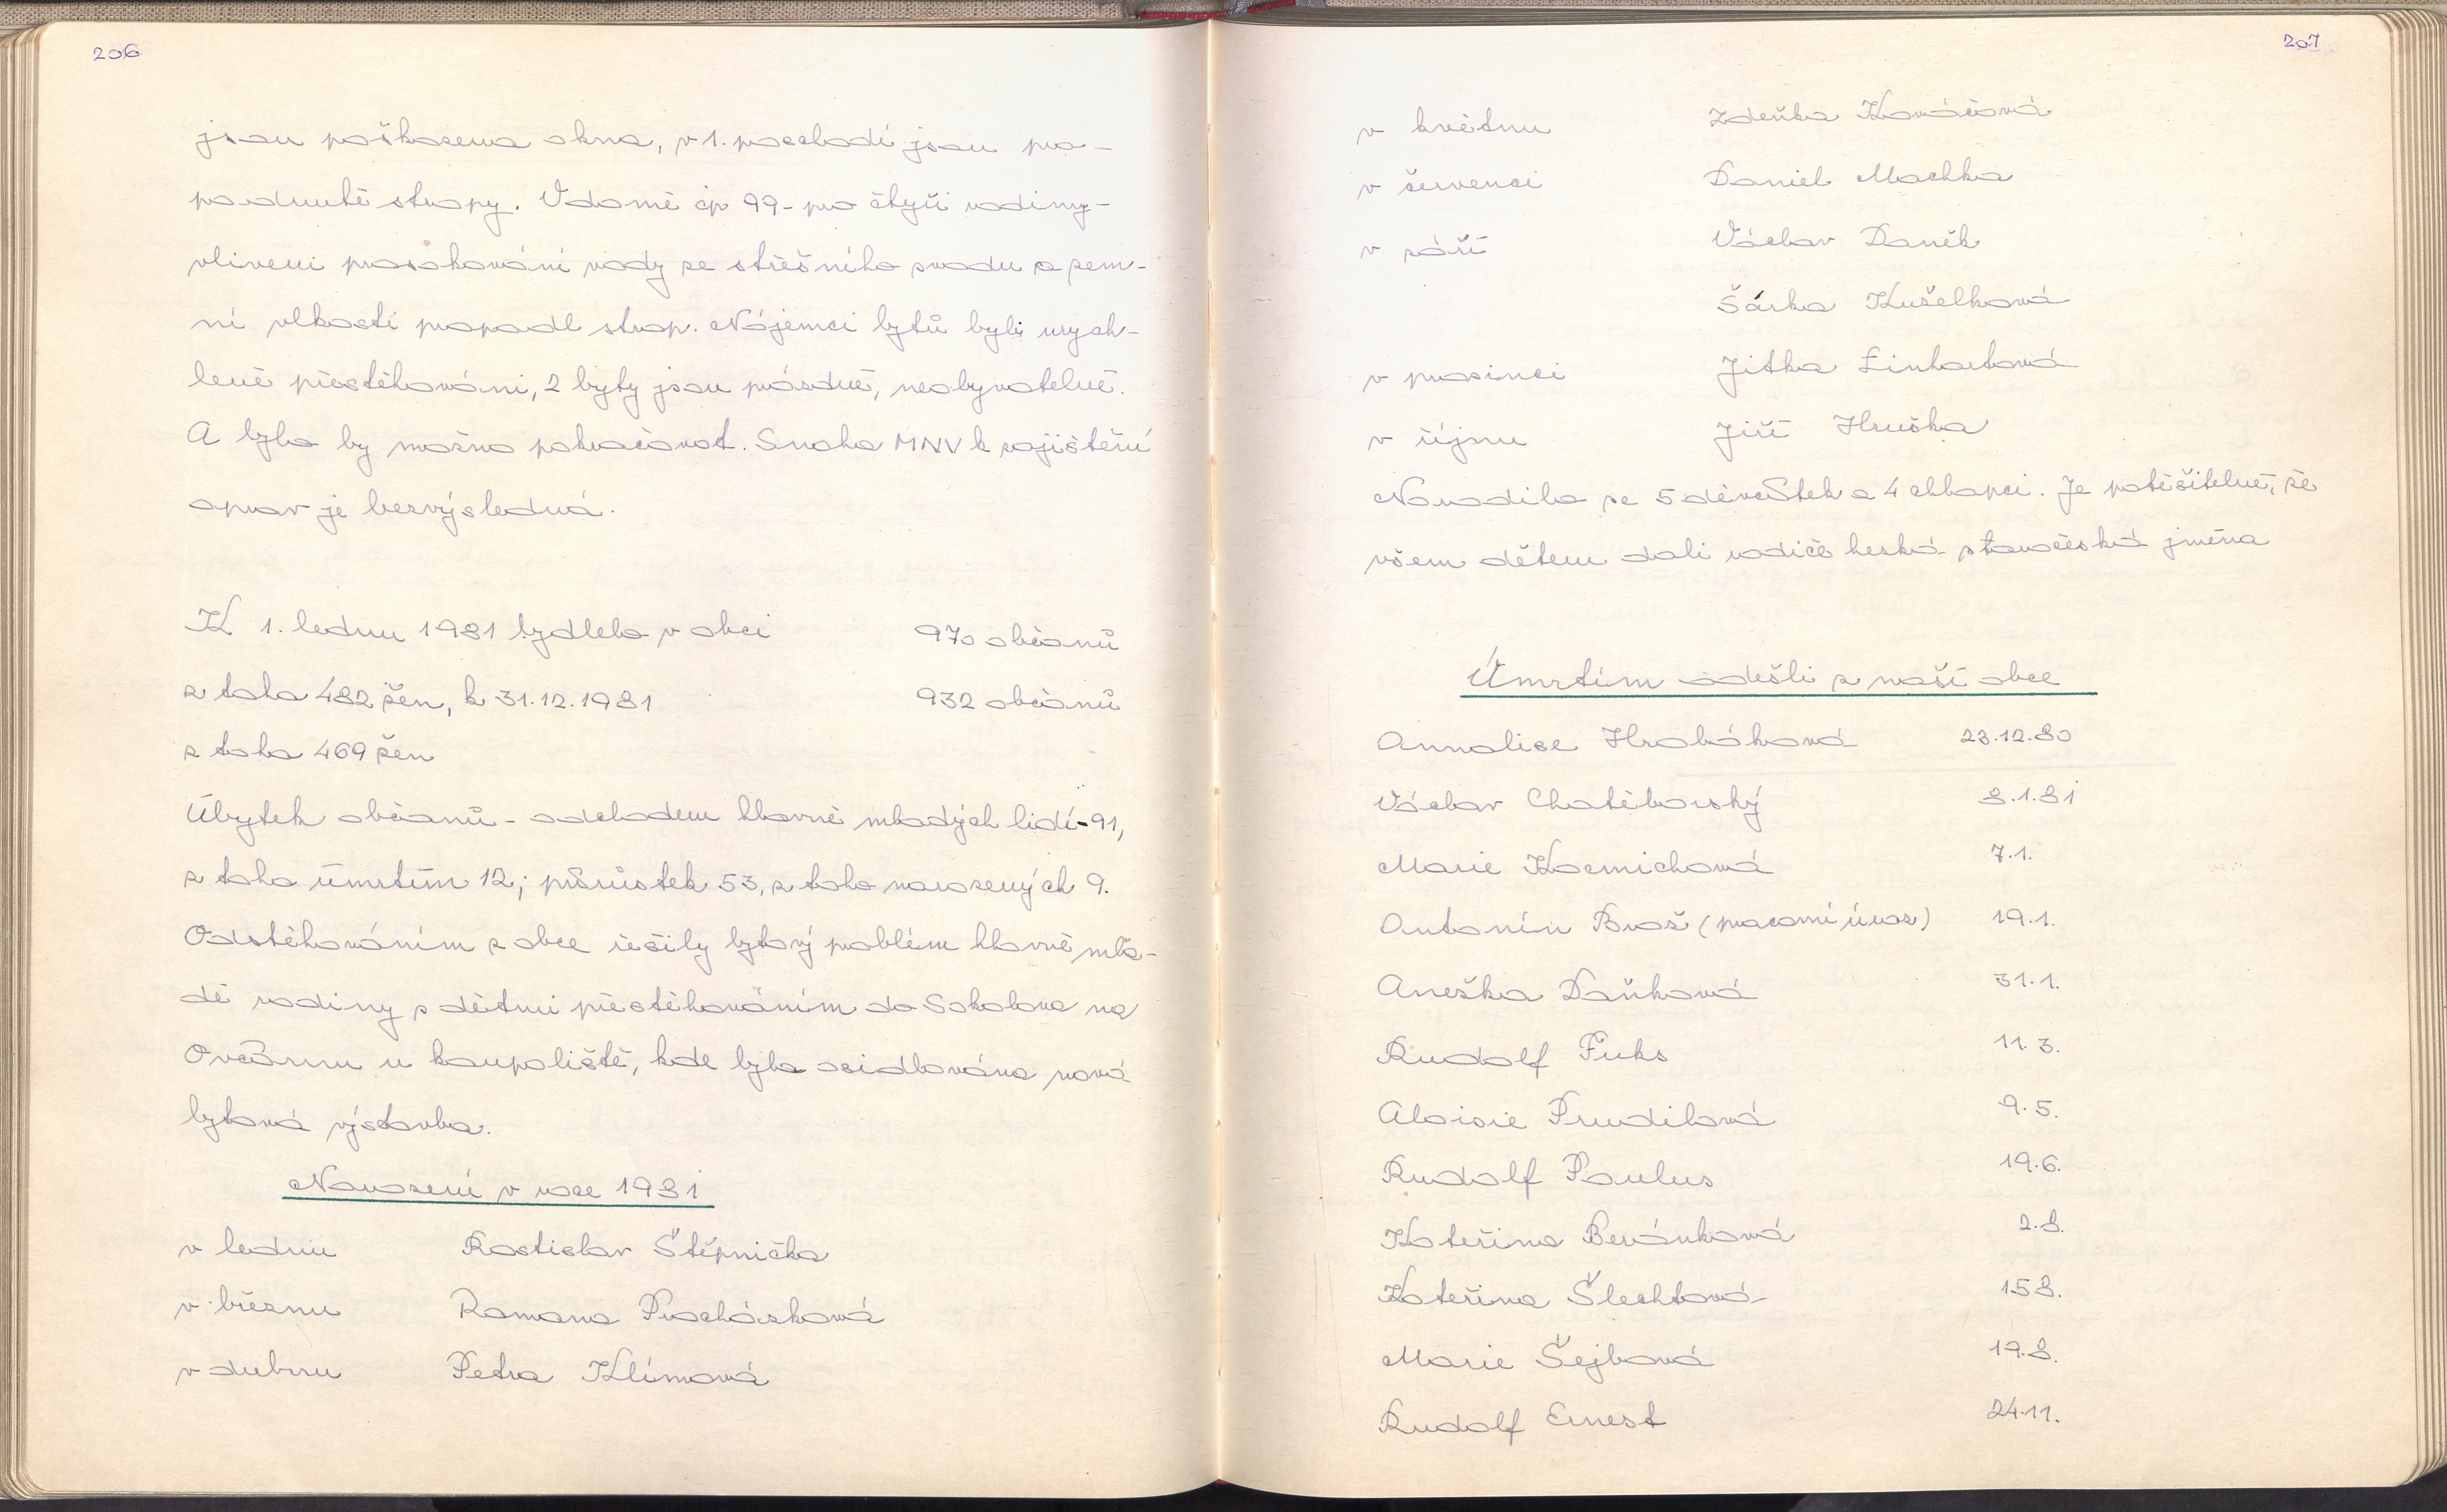 206
jsou poškozena okna, v 1. poschodí jsou pro-
padnuté stropy. V domě čp 99 - pro čtyři rodiny -
vlivem prosakování vody ze střešního svodu a zem-
ní vlkostí propadl strop. Nájemci bytů byli urych-
leně přestěhováni, 2 byty jsou prázdné, neobyvatelné.
A bylo by možno pokračovat. Snaha MNV k zajištění
oprav je bezvýsledná.
K 1. lednu 1981 bydlelo v obci 970 občanů
z toho 482 žen, k 31.12.1981 932 občanů
z toho 469 žen
Úbytek občanů - odchodem hlavně mladých lidí - 91,
z toho úmrtím 12; přírůstek 53, z toho narozených 9.
Odstěhováním z obce řešily bytový problém hlavně mla-
dé rodiny s dětmi přestěhováním do Sokolova na
Ovčárnu u koupaliště, kde byla osidlována nová
bytová výstavba.
Narození v roce 1981
v lednu Rostislav Štěpnička
v březnu Romana Procházková
v dubnu Petra Klímová
207
v květnu Zdeňka Kováčová
v červenci Daniel Machka
v září Václav Daněk
Šárka Kuželková
v prosinci Jitka Linhartová
v říjnu Jiří Hruška
Narodilo se 5 děvčátek a 4 chlapci. Je potěšitelné, že
všem dětem dali rodiče hezká staročeská jména
Úmrtím odešli z naší obce
Annalise Hrabáková 23.12.80
Václav Chotěborský 8.1.81
Marie Kocmichová 7.1.
Antonín Brož (pracovní úraz) 19.1.
Anežka Daňková 31.1.
Rudolf Fuks 11.3.
Aloisie Prudilová 9.5.
Rudolf Paulus 19.6.
Kateřina Beránková 2.8.
Kateřina Šlechtová 15.8.
Marie Šejbová 19.8.
Rudolf Ernest 24.11.